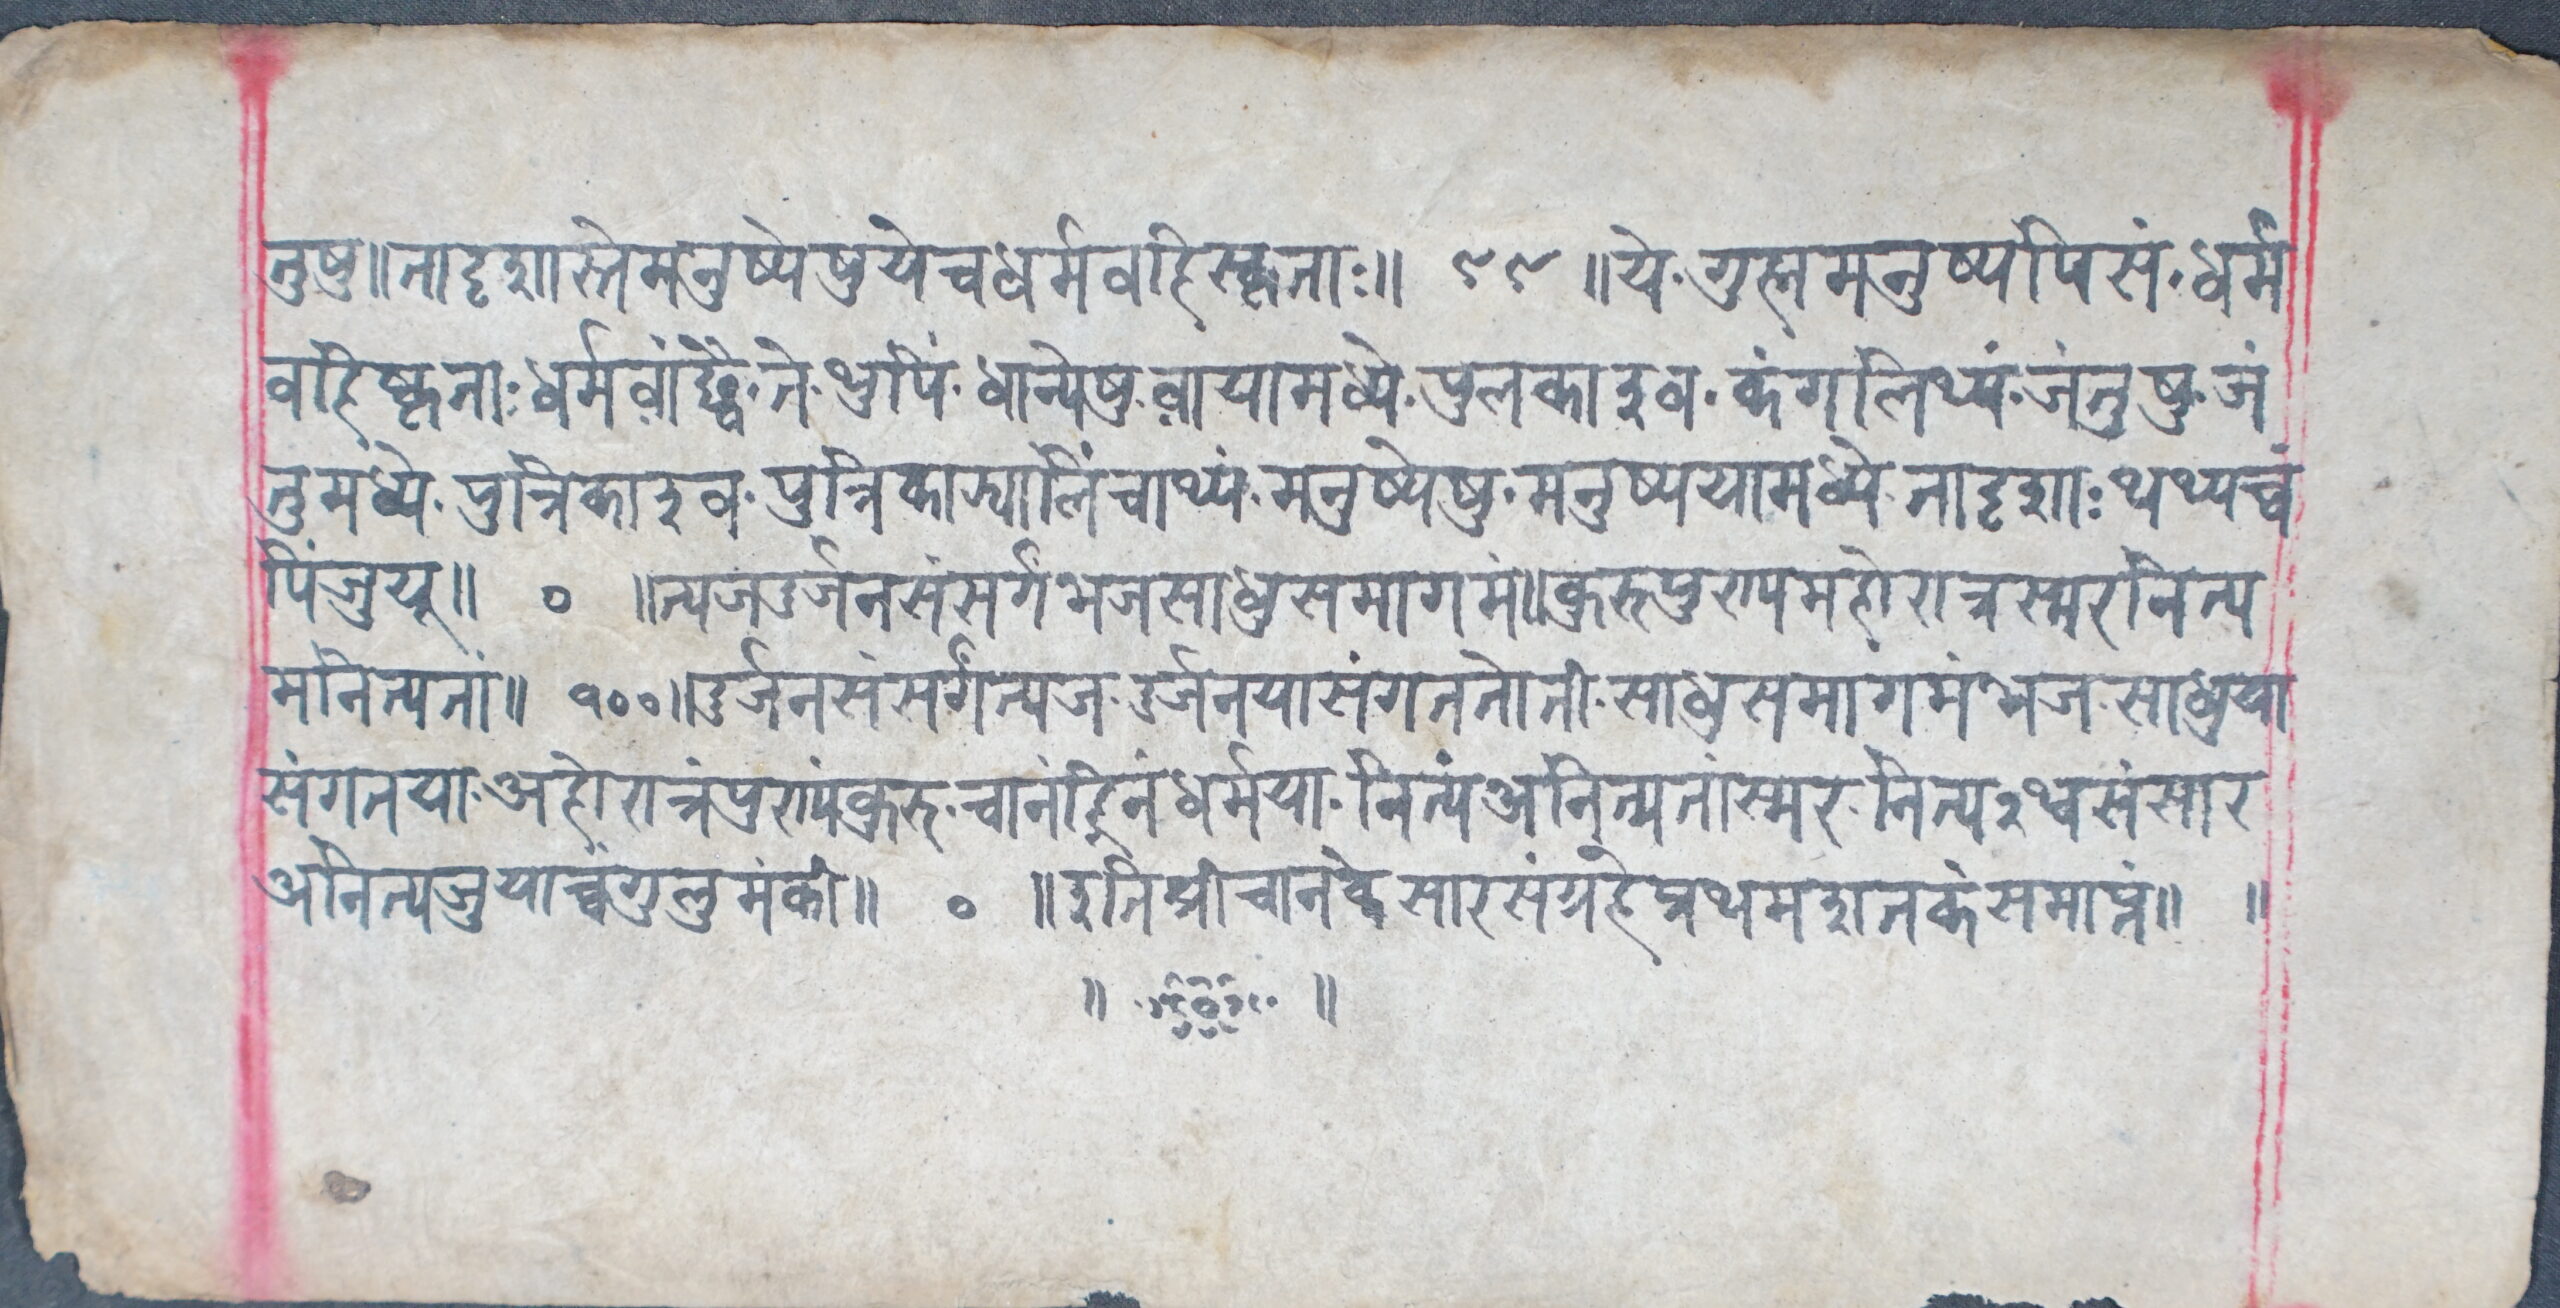 तुषु॥तादृशास्तेमनुष्येषुयेचधर्मवहिस्कृताः॥ ९९ ॥ये॰गुह्ममनुष्यपिसं॰धर्म
वहिष्कृताः॰धर्मवांछ्वै॰ते॰थुपिं॰धान्येषु॰वायामध्ये॰पुलकाइव॰कंगलिथ्यं॰जंतुषु॰जं
तुमध्ये॰पुत्रिकाइव॰पुत्रिकास्यालिंचाथ्यं॰मनुष्येषु॰मनुष्ययामध्ये॰तादृशाः॰थथ्यच्वं
पिंजुयू॥ ० ॥त्यजदुर्जनसंसर्गंभजसाधुसमागमं॥कुरुपुरापमहोरात्रस्मरनित्य
मनित्यतां॥ १००॥दुर्जनसंसर्गंत्यज॰दुर्जनयासंगततोती॰साधुसमागमंभज॰साधुया
संगतया॰अहोरात्रंपुरापंकुरु॰चानंद्विनंधर्मया॰नित्यंअनित्यतांस्मर॰नित्य२थ्वसंसार
अनित्यजुयाच्वंगुलुमंकी॥ ० ॥इतिश्रीचानकेसारसंग्रहेप्रथमशतकंसमाप्तं॥ ॥
॥ ॥